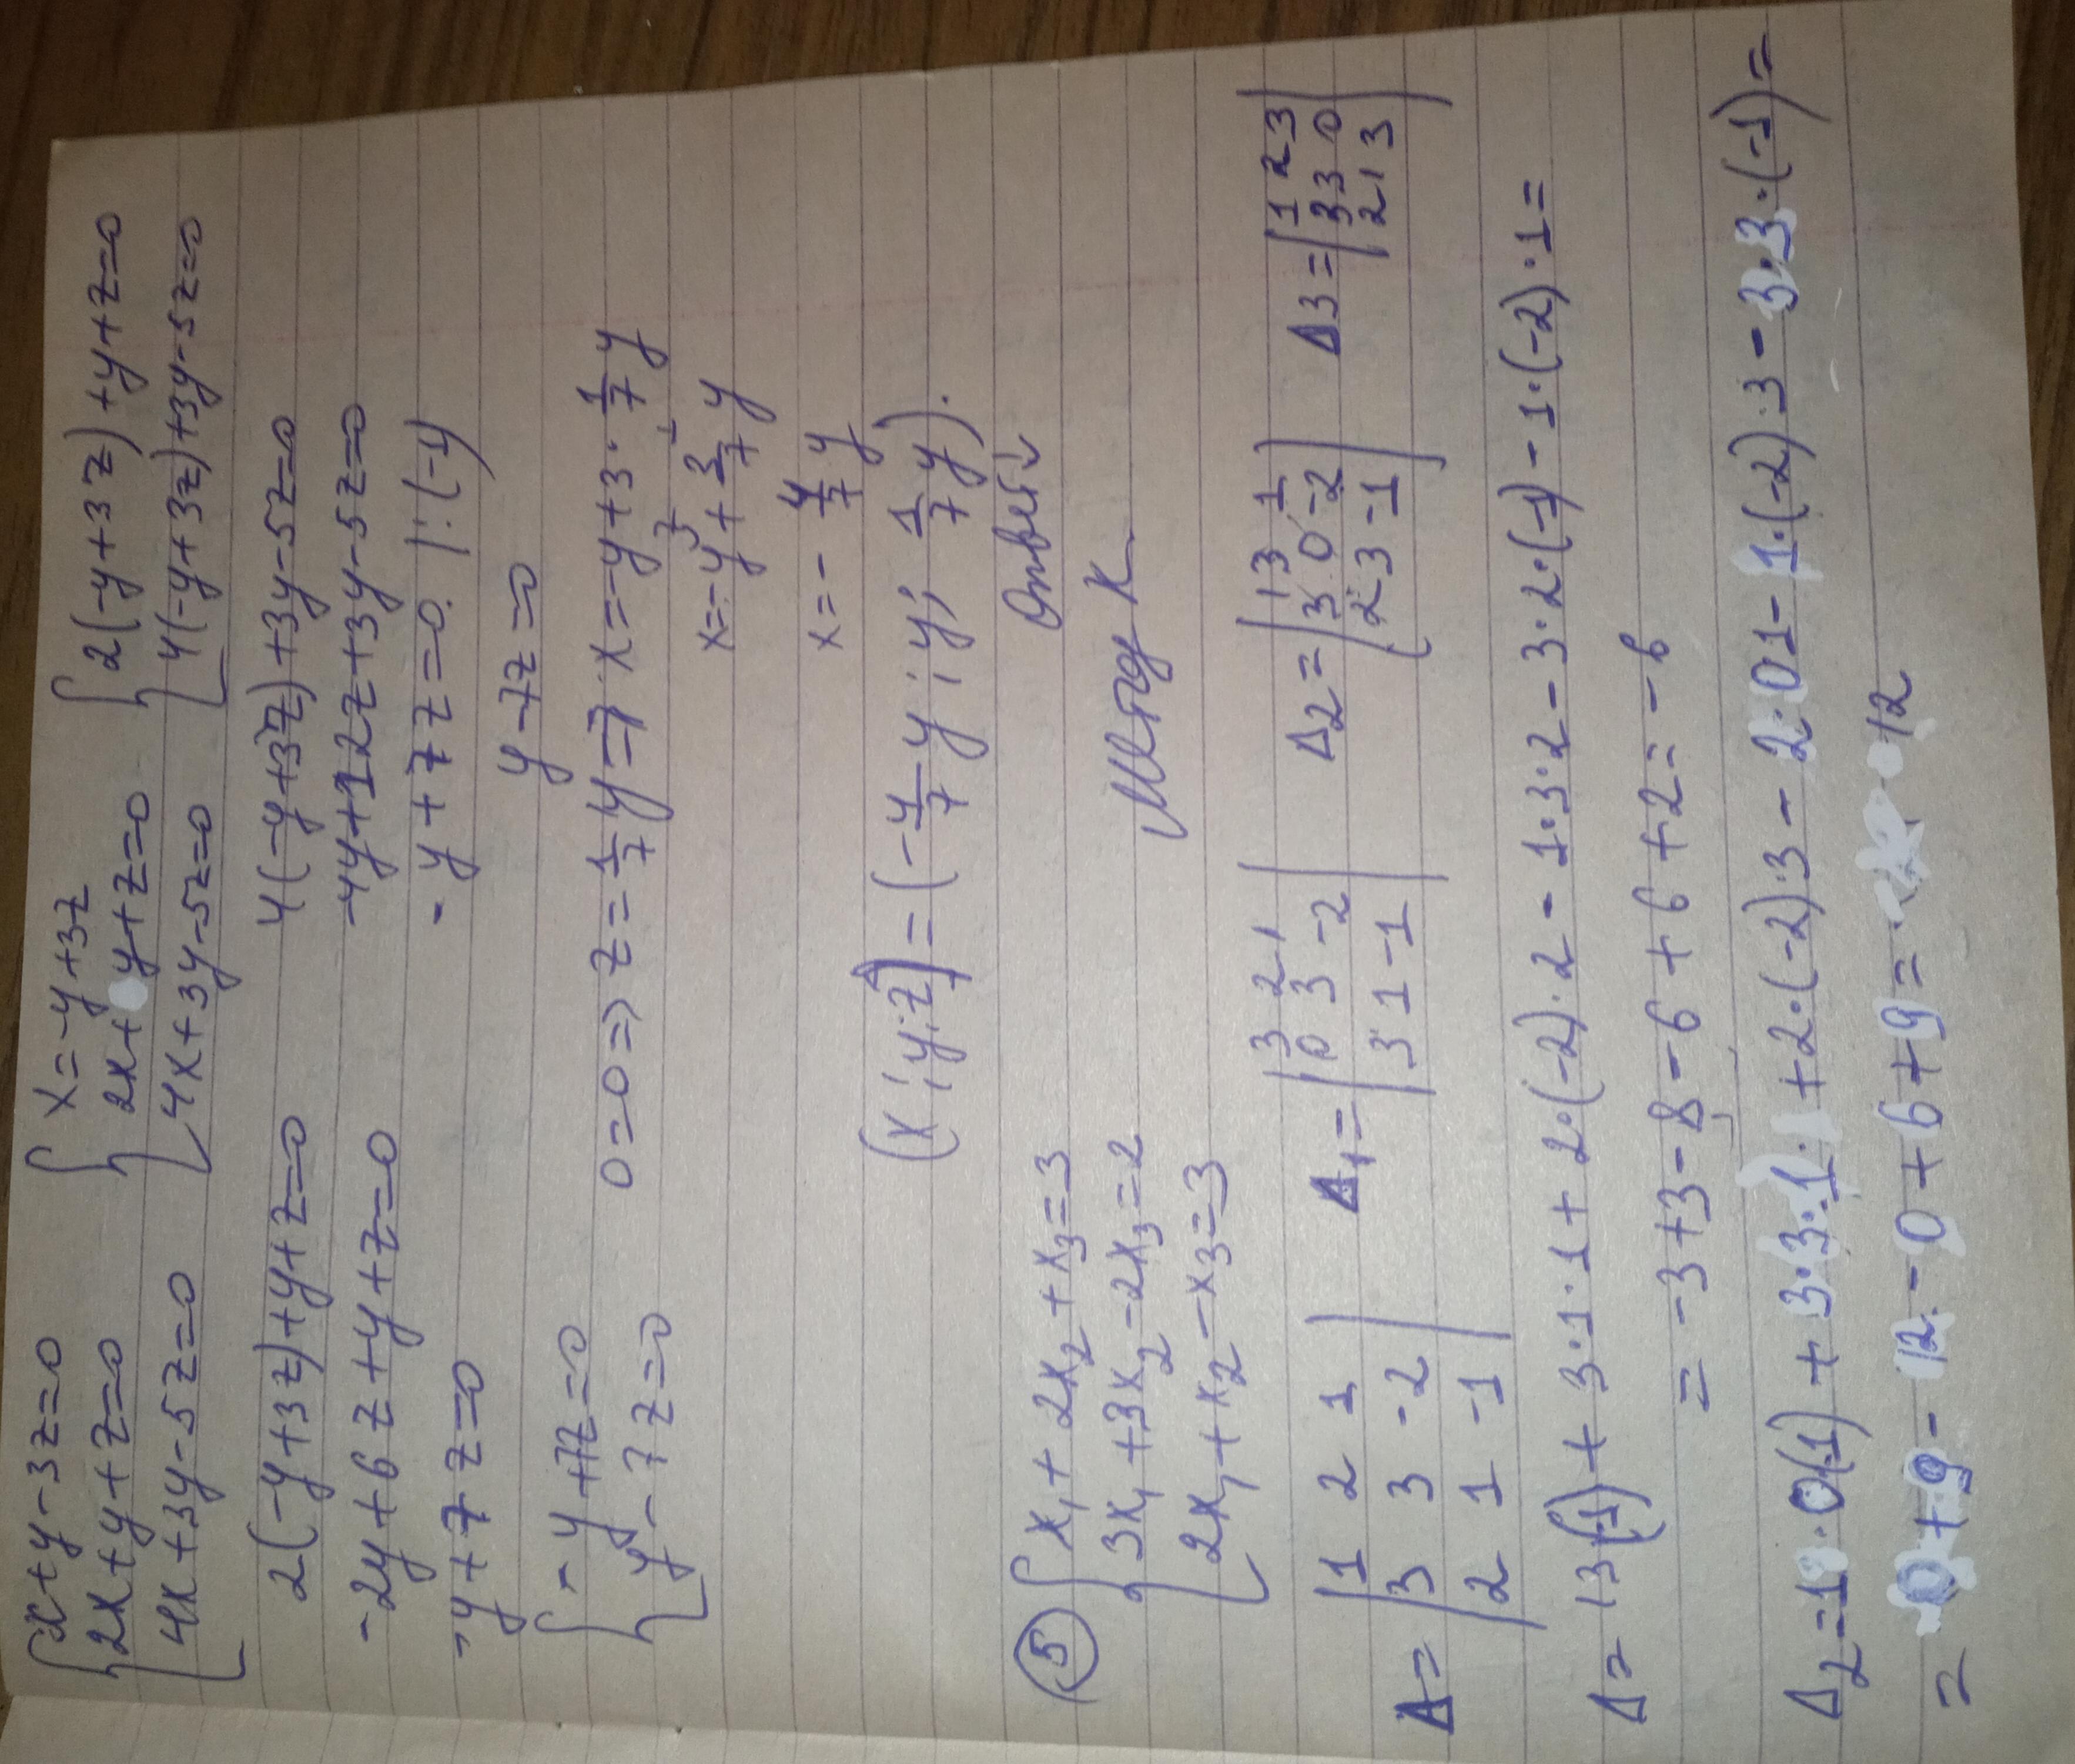 {x+y-3z=0 {x=-y+3z
2x+y+z=0 2x+y+z=0 {2(-y+3z)+y+z=0
4x+3y-5z=0 4x+3y-5z=0 4(-y+3z)+3y-5z=0
2(-y+3z)+y+z=0 4(-y+3z)+3y-5z=0
-2y+6z+y+z=0 -4y+12z+3y-5z=0
-y+7z=0 -y+7z=0 |:(-1)
y-7z=0
{-y+7z=0
y-7z=0 0=0=) z=1/7y=7 x=-y+3·1/7y
x=-y+3/7y
x=-4/7y
(x;y;z)=(-4/7y;y;1/7y).
Ответ
⑤ {x₁+2x₂+x₃=3
3x₁+3x₂-2x₃=2 Метод К
2x₁+x₂-x₃=3
Δ= |1 2 1| Δ₁= |3 2 1| Δ2= |1 3 1| Δ3= |1 2 3|
|3 3 -2| |0 3 -2| |3 0 -2| |3 3 0|
|2 1 -1| |3 1 -1| |2 3 -1| |2 1 3|
Δ= 13(-1)+3·1·1+2·(-2)·2-1·3·2-3·2·(-1)-1·(-2)·1=
=-3+3-8-6+6+2=-6
Δ2=1·0(-1)+3·3·1+2·(-2)3-2·01-1·(-2)·3-3·3·(-1)=
=0+9-12-0+6+9=12